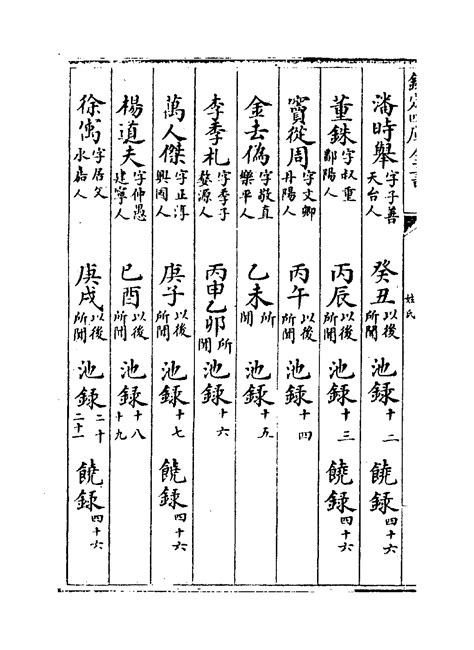 欽定四庫全書
姓氏
潘時舉字子善天台人 癸丑以後所聞 池録十二 饒録四十六
董銖字叔重鄱陽人 丙辰以後所聞 池録十三 饒録四十六
竇從周字文卿丹陽人 丙午以後所聞 池録十四
金去偽字敬直樂平人 乙未所聞 池録十五
李季札字季子婺源人 丙申乙卯所聞 池録十六
萬人傑字正淳興國人 庚子以後所聞 池録十七 饒録四十六
楊道夫字仲愚建寧人 己酉以後所聞 池録十八十九
徐㝢字居父永嘉人 庚戌以後所聞 池録二十二十一 饒録四十六